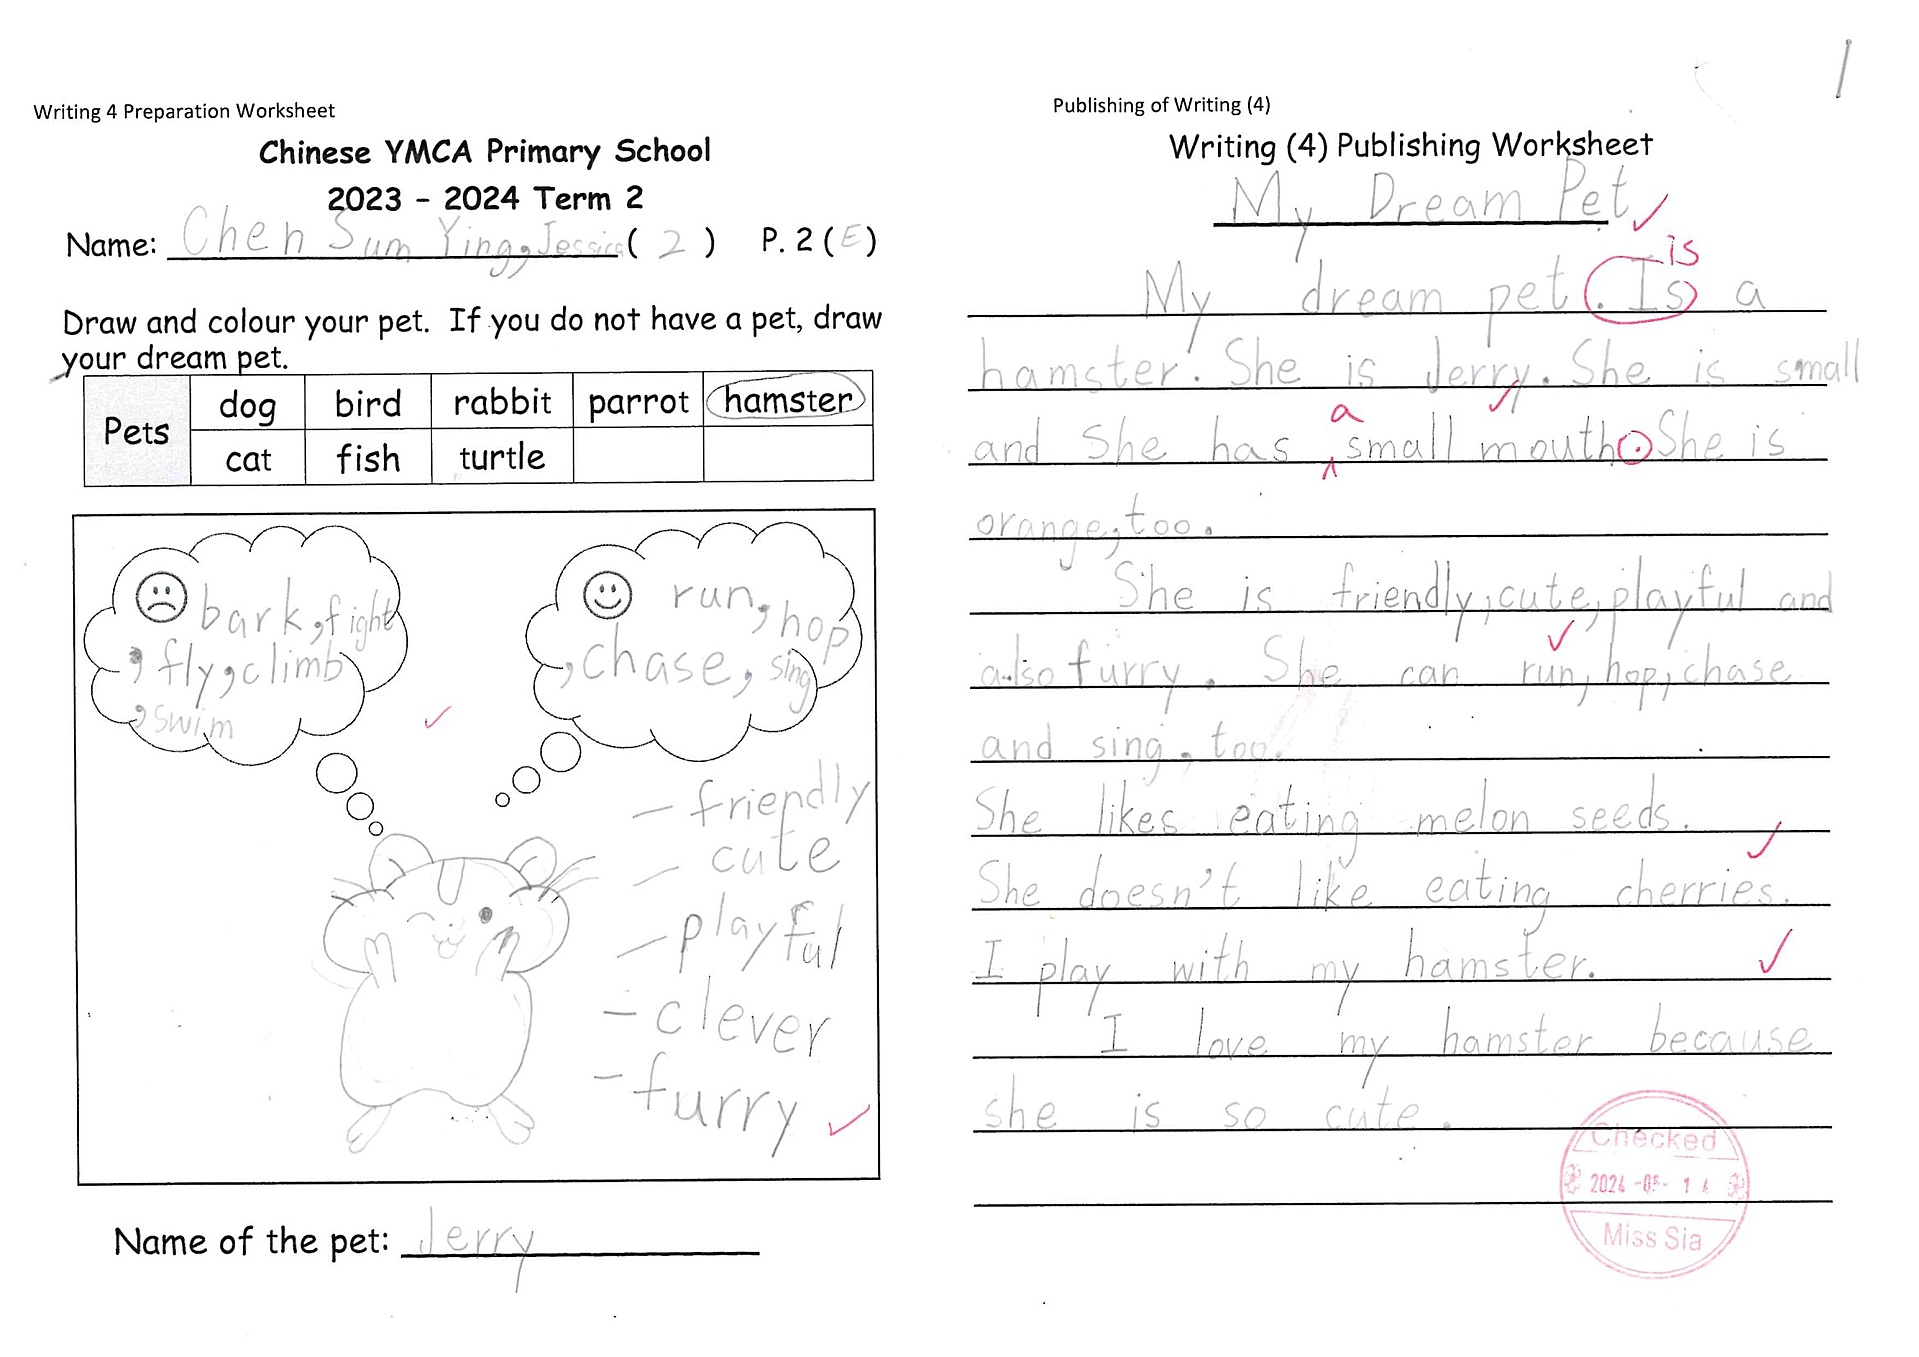 Writing 4 Preparation Worksheet
Chinese YMCA Primary School
2023 - 2024 Term 2
Name: Chen Sum Ying, Jessica ( 2 ) P. 2 ( E )
Draw and colour your pet. If you do not have a pet, draw
your dream pet.
Pets dog bird rabbit parrot hamster
cat fish turtle
bark, fight
, fly, climb
, swim
run, hop
, chase, sing
- friendly
- cute
- playful
- clever
- furry
Name of the pet: Jerry
Publishing of Writing (4)
Writing (4) Publishing Worksheet
My Dream Pet
is
My dream pet . Is a
hamster. She is Jerry. She is small
a
and She has small mouth. She is
orange, too.
She is friendly, cute, playful and
also furry. She can run, hop, chase
and sing, too.
She likes eating melon seeds.
She doesn't like eating cherries.
I play with my hamster.
I love my hamster because
she is so cute.
Checked
2024 -05- 14
Miss Sia